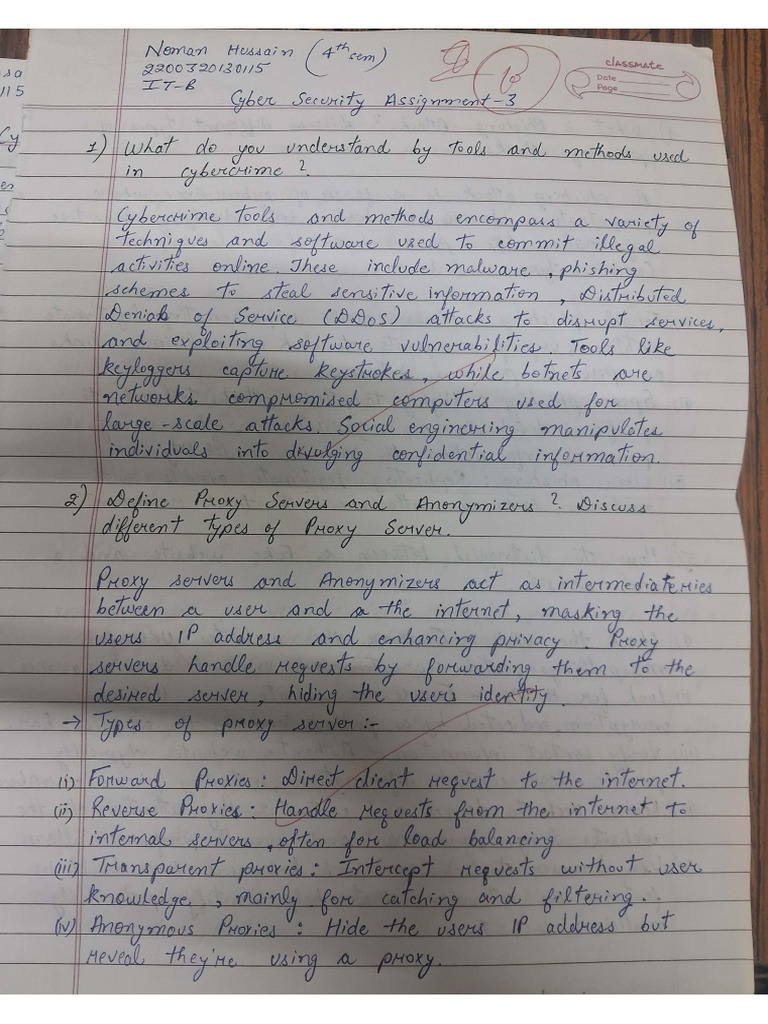 Noman Hussain (4th sem)
2200320130115
IT-B
classmate
Date
Page
10
Cyber Security Assignment-3
1) What do you understand by tools and methods used
in cybercrime ?
Cybercrime tools and methods encompass a variety of
techniques and software used to commit illegal
activities online. These include malware , phishing
schemes to steal sensitive information , Distributed
Denial of Service (DDoS) attacks to disrupt services,
and exploiting software vulnerabilities. Tools like
keyloggers capture keystrokes, while botnets are
networks. compromised computers used for
large-scale attacks. Social engineering manipulates
individuals into divulging confidential information.
2) Define Proxy Servers and Anonymizers ? Discuss
different types of Proxy Server.
Proxy servers and Anonymizers act as intermediateries
between a user and a the internet, masking the
users IP address and enhancing privacy . Proxy
servers handle requests by forwarding them to the
desired server, hiding the user's identity.
→ Types of proxy server :-
(i) Forward Proxies : Direct client request to the internet.
(ii) Reverse Proxies : Handle requests from the internet to
internal servers , often for load balancing
(iii) Transparent proxies : Intercept requests without user
knowledge , mainly for catching and filtering.
(iv) Anonymous Proxies : Hide the users IP address but
reveal they're using a proxy.